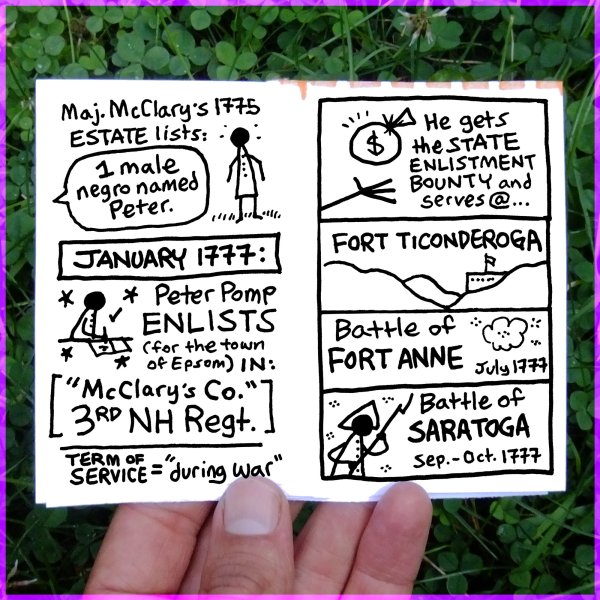 Maj. McClary's 1775
ESTATE lists:
1 male
negro named
Peter.
JANUARY 1777:
Peter Pomp
ENLISTS
(for the town
of Epsom) IN:
["McClary's Co."
3RD NH Regt.]
TERM OF
SERVICE = "during war"
$
He gets
the STATE
ENLISTMENT
BOUNTY and
serves @...
FORT TICONDEROGA
Battle of
FORT ANNE July 1777
Battle of
SARATOGA
Sep.-Oct. 1777